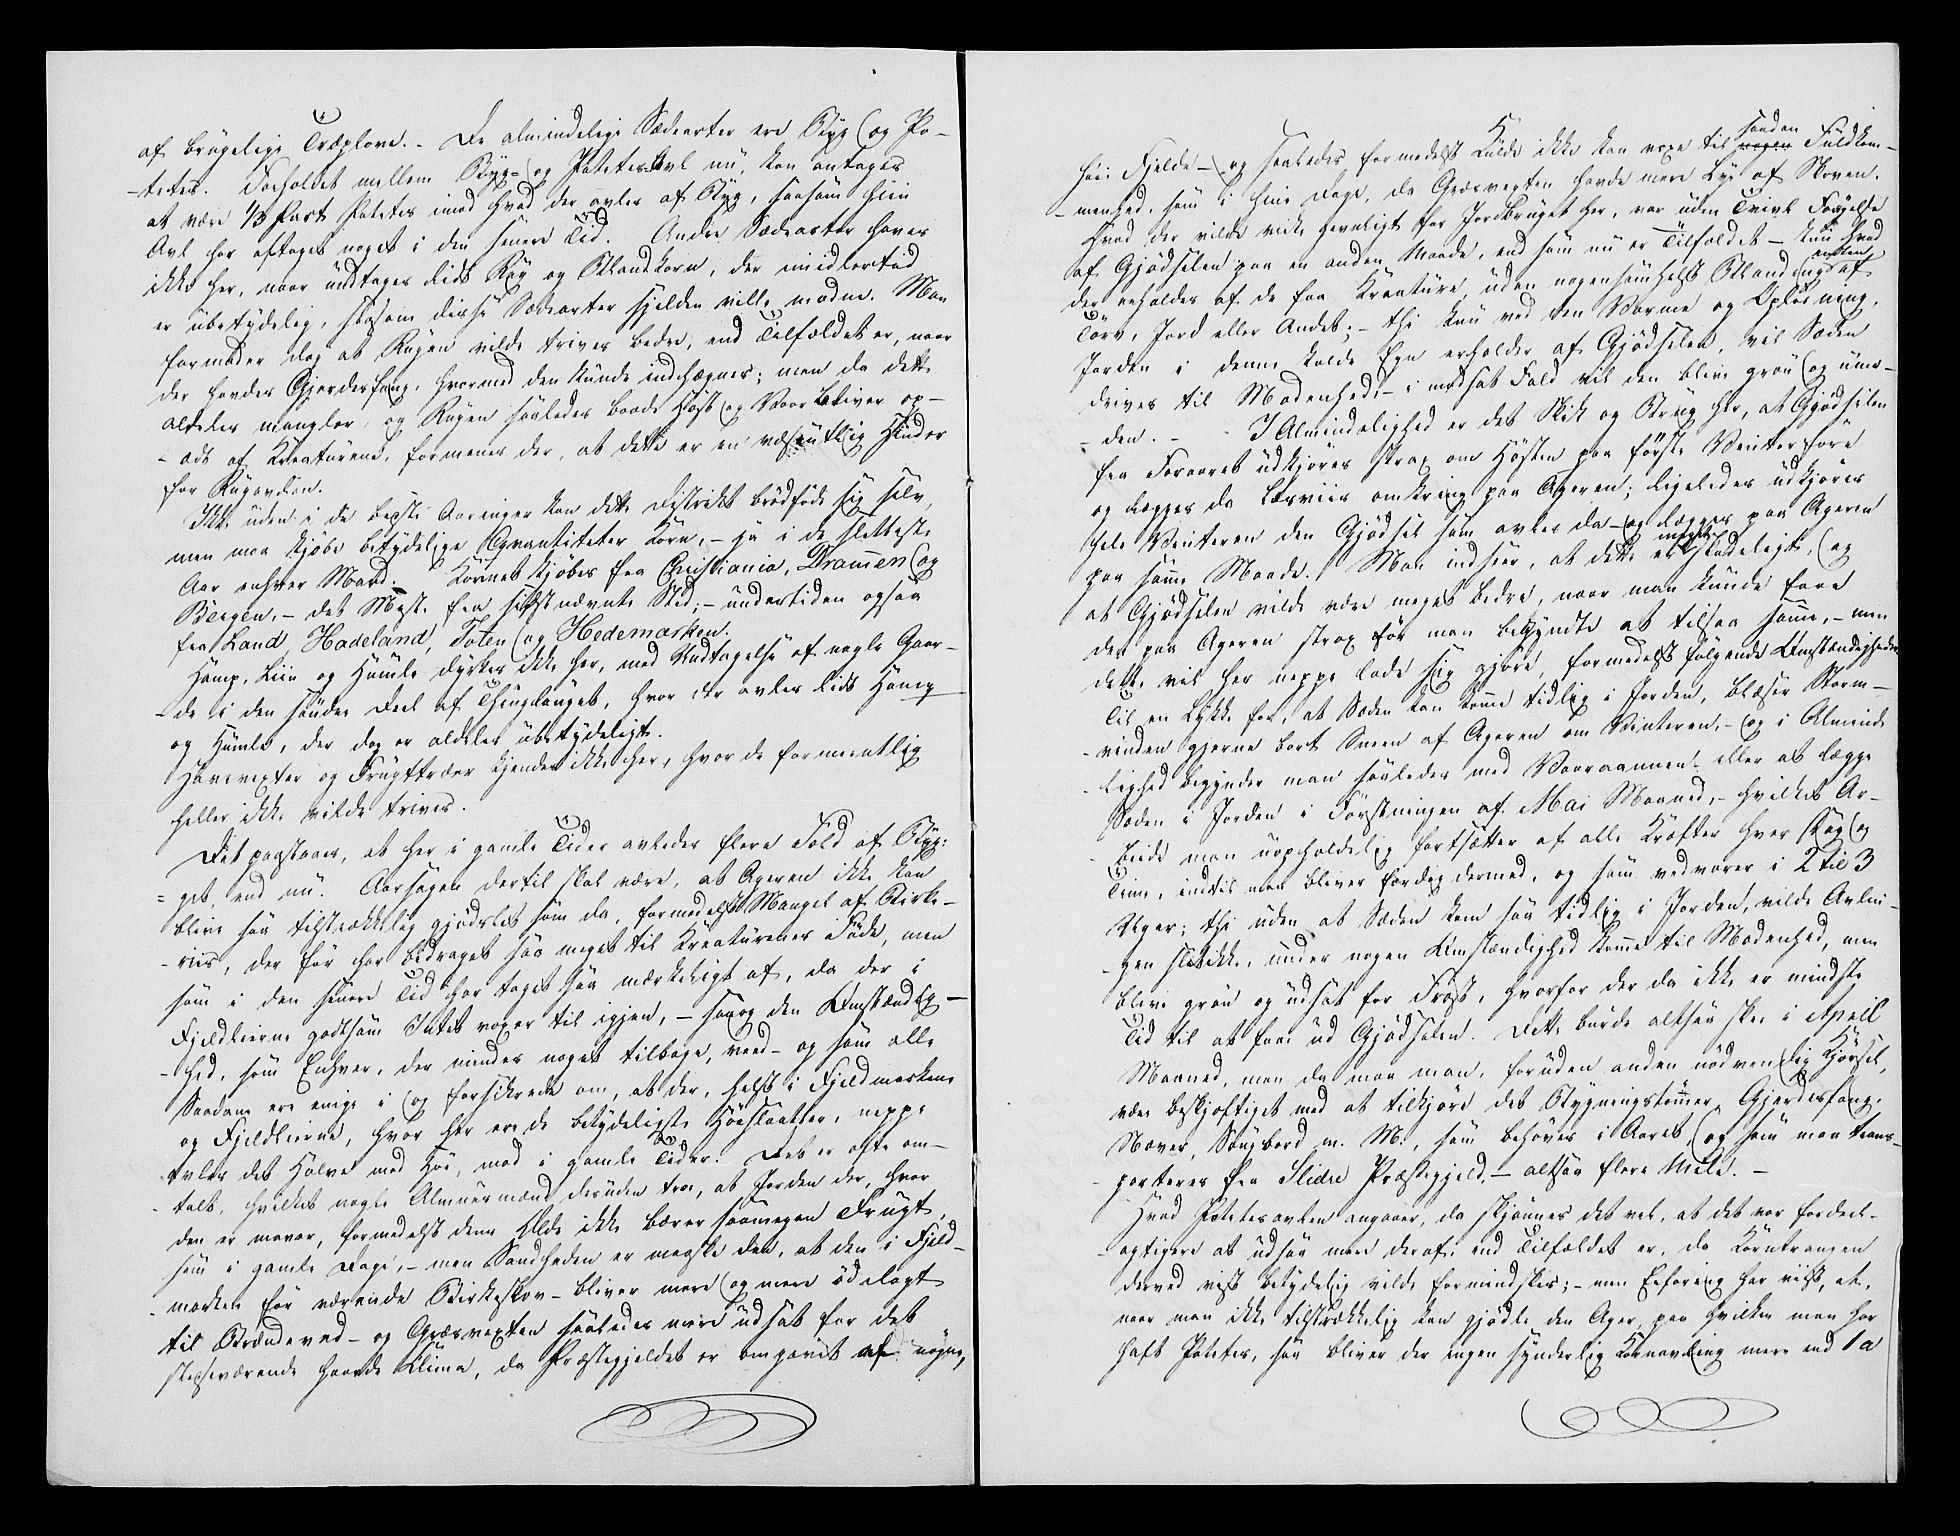 af brugelige Træplove. - De almindelige Sædearter ere Byg og Po-
-tetes. Forholdet mellem Byg- og Potetesavl nu, kan antages
at være 1/3 Part Potetes imod hvad der avles af Byg, saasom hiin
Avl har aftaget noget i den senere Tid. Andre Sædearter haves
ikke her, naar undtages lidt Rug og Blandkorn, der imidlertid
er ubetydelig, saasom disse Sædearter sjelden ville modne. Man
formoder dog at Rugen vilde trives bedre, end Tilfældet er, naar
der havdes Gjerdesfang, hvormed den kunde indhægnes; men da dette
aldeles mangler, og Rugen saaledes baade Høst og Vaar bliver op-
-ædt af Kreaturene, formenes der, at dette er en væsentlig Hinder
for Rugavlen.
Ikke uden i de beste Aaringer kan dette Distrikt brødføde sig selv,
men maa kjøbe betydelige Qvantiteter Korn, - ja i de sletteste
Aar enhver Mand. Kornet kjøbes fra Christiania, Dramen og
Bergen, - det Meste fra sidstnævnte Sted, - undertiden ogsaa
fra Land, Hadeland, Toten og Hedemarken.
Hamp, Liin og Humle dyrkes ikke her, med Undtagelse af nogle Gaar-
-de i den søndre Deel af Thinglauget, hvor der avles lidt Hamp
og Humle, der dog er aldeles ubetydeligt.
Havevexter og Frugttræer kjendes ikke her, hvor de formeentlig
heller ikke vilde trives.
Det paastaaes, at her i gamle Tider avledes flere Fold af Byg-
-get, end nu. Aarsagen dertil skal være, at Ageren ikke kan
blive saa tilstrækkelig gjødslet som da, formedelst Mangel af Birke-
-riis, der før har bidraget saa meget til Kreaturenes Føde, men
som i den senere Tid har taget saa mærkeligt af, da der i
Fjeldlierne godtsom Intet voxer til igjen, - samt den Omstændig-
-hed, som Enhver, der mindes noget tilbage, veed - og som alle
Saadane ere enige i og forsikrede om, at der, helst i Fjeldmarkene
og Fjeldlierne, hvor her ere de betydeligste Høeslaatter, neppe
avles det Halve mod Høe, mod i gamle Tider. Det er ofte om-
-talt, hvilket nogle Almuesmænd desuden troe, at Jorden der, hvor
den er mager, formedelst dens Ælde ikke bærer saamegen Frugt,
som i gamle Dage, - men Sandheden er maaske den, at den i Fjeld-
-marken før værende Birkeskov - bliver mere og mere ødelagt
til Brændeved - og Græsvexten saaledes mere udsat for det
stedseværende haarde Klima, da Præstegjeldet er omgivet af nøgne,
høie Fjelde - og saaledes formedelst Kulde ikke kan voxe til saadan Fuldkom-
-menhed, som i hine Dage, da Græsvexten havde mere Lye af Skoven.
Hvad der vilde virke gavnligt for Jordbruget her, var uden Tvivl Forøgelse
af Gjødselen paa en anden Maade, end som nu er Tilfældet - kun hvad
der erholdes af de faa Kreature, uden nogensomhelst Blanding enten af
Tørv, Jord eller Andet; - thi kun ved den Varme og Opløsning,
Jorden i denne kolde Egn erholder af Gjødselen, vil Sæden
drives til Modenhed, - i modsat Fald vil den blive grøn og umo-
-den. - I Almindelighed er det Skik og Brug her, at Gjødselen
fra Foraaret udkjøres strax om Høsten paa første Vinterføre
og lægges da læsviis omkring paa Ageren; ligeledes udkjøres
hele Vinteren den Gjødsel som avles da - og lægges paa Ageren
paa samme Maade. Man indseer, at dette er meget skadeligt, og
at Gjødselen vilde være meget bedre, naar man kunde føre
den paa Ageren strax før man begyndte at tilsaa samme, - men
dette vil her neppe lade sig gjøre, formedelst følgende Omstændigheder
Til en Lykke for, at Sæden kan komme tidlig i Jorden, blæser Storm-
-vinden gjerne bort Sneen af Ageren om Vinteren, - og i Alminde
-lighed begynder man saaledes med Vaaraannen eller at lægge
Sæden i Jorden i Førstningen af Mai Maaned, - hvilket Ar-
-beide man uopholdelig fortsætter af alle Kræfter hver Dag og
Time, indtil man bliver færdig dermed, og som vedvarer i 2 til 3
Uger; thi uden at Sæden kom saa tidlig i Jorden, vilde Avlin-
-gen slet ikke, under nogen Omstændighed komme til Modenhed, men
blive grøn og udsat for Frost, hvorfor der da ikke er mindste
Tid til at faae ud Gjødselen. Dette burde altsaa skee i April
Maaned, men da maa man, foruden anden nødvendig Kjørsel,
være beskjæftiget med at tilkjøre det Bygningstømmer, Gjerdesfang,
Næver, Saugbord m. M., som behøves i Aaret, og som man trans-
-porteres fra Slidre Præstegjeld, - altsaa flere Mile. -
Hvad Potetesavlen angaaer, da skjønnes det vel, at det var fordeel-
-agtigere at udsaa mere deraf, end Tilfældet er, da Korntrangen
derved vist betydelig vilde formindskes; - men Erfaring har viist, at,
naar man ikke tilstrækkelig kan gjødle den Ager, paa hvilken man har
haft Potetes, saa bliver der ingen synderlig Kornavling mere end 1 a